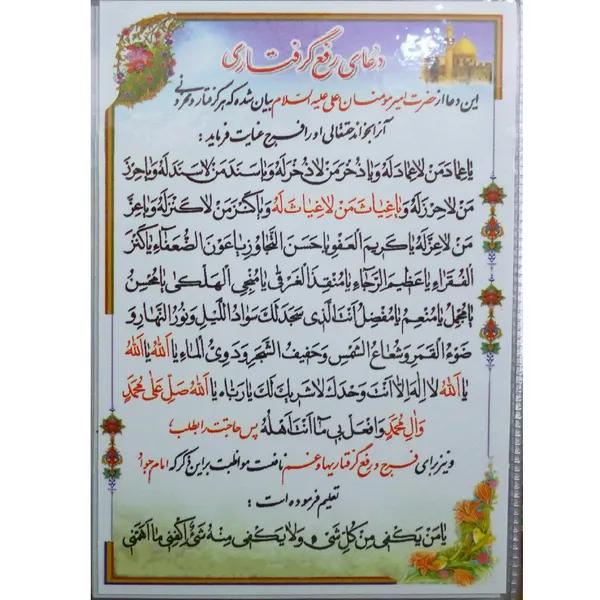 دعای رفع گرفتاری
این دعا از حضرت امیرمومنان علی علیه السلام بیان شده که هر گرفتار و محزونی
آنرا بخواند حقتعالی او را فرج عنایت فرماید :
یا عِمادَ مَنْ لا عِمادَ لَهُ وَیا ذُخْرَ مَنْ لا ذُخْرَ لَهُ وَیا سَنَدَ مَنْ لا سَنَدَ لَهُ وَیا حِرْزَ
مَنْ لا حِرْزَ لَهُ وَیا غِیاثَ مَنْ لا غِیاثَ لَهُ وَیا کَنْزَ مَنْ لا کَنْزَ لَهُ وَیا عِزَّ
مَنْ لا عِزَّ لَهُ یا کَریمَ الْعَفْوِ یا حَسَنَ التَّجاوُزِ یا عَوْنَ الضُّعَفاءِ یا کَنْزَ
الْفُقَراءِ یا عَظیمَ الرَّجاءِ یا مُنْقِذَ الْغَرْقی یا مُنْجِیَ الْهَلْکی یا مُحْسِنُ
یا مُجْمِلُ یا مُنْعِمُ یا مُفْضِلُ اَنْتَ الَّذی سَجَدَ لَکَ سَوادُ اللَّیْلِ وَنُورُ النَّهارِ وَ
ضَوْءُ الْقَمَرِ وَشُعاعُ الشَّمْسِ وَحَفیفُ الشَّجَرِ وَدَوِیُّ الْماءِ یا اَللّهُ یا اَللّهُ
یا اَللّهُ لا اِلهَ اِلاّ اَنْتَ وَحْدَکَ لا شَریکَ لَکَ یا رَبّاهُ یا اَللّهُ صَلِّ عَلی مُحَمَّدٍ
وَآلِ مُحَمَّدٍ وَافْعَلْ بی ما اَنْتَ اَهْلُهُ پس حاجتت را بطلب؛
و نیز برای فرج و رفع گرفتاریها و غم نافعست مواظبت بر این ذکر که امام جواد
تعلیم فرموده است :
یا مَنْ یَکْفی مِنْ کُلِّ شَیْءٍ وَلا یَکْفی مِنْهُ شَیْءٌ اِکْفِنی ما اَهَمَّنی